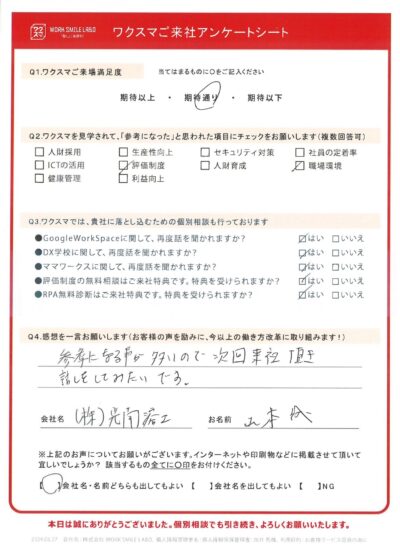 ワクスマ WORK SMILE LABO ワクスマご来社アンケートシート
Q1.ワクスマご来場満足度 当てはまるものに○をご記入ください
期待以上 ・ 期待通り ・ 期待以下
Q2.ワクスマを見学されて、「参考になった」と思われた項目にチェックをお願いします(複数回答可)
人財採用 生産性向上 セキュリティ対策 社員の定着率
ICTの活用 評価制度 人財育成 職場環境
健康管理 利益向上
Q3.ワクスマでは、貴社に落とし込むための個別相談も行っております
●GoogleWorkSpaceに関して、再度話を聞かれますか? はい いいえ
●DX学校に関して、再度話を聞かれますか? はい いいえ
●ママワークスに関して、再度話を聞かれますか? はい いいえ
●評価制度の無料相談はご来社特典です。特典を受けられますか? はい いいえ
●RPA無料診断はご来社特典です。特典を受けられますか? はい いいえ
Q4.感想を一言お願いします(お客様の声を励みに、今以上の働き方改革に取り組みます!)
参考になる事が多いので次回来社頂き
話しをしてみたいです。
会社名 (株) お名前 山本
※上記のお声についてお願いがございます。インターネットや印刷物などに掲載させて頂いて
宜しいでしょうか? 該当するもの全てに○印をお付けください。
【 】会社名・名前どちらも出してもよい 【 】会社名のみ出してもよい 【 】NG
本日は誠にありがとうございました。個別相談でも引き続き、よろしくお願いいたします。